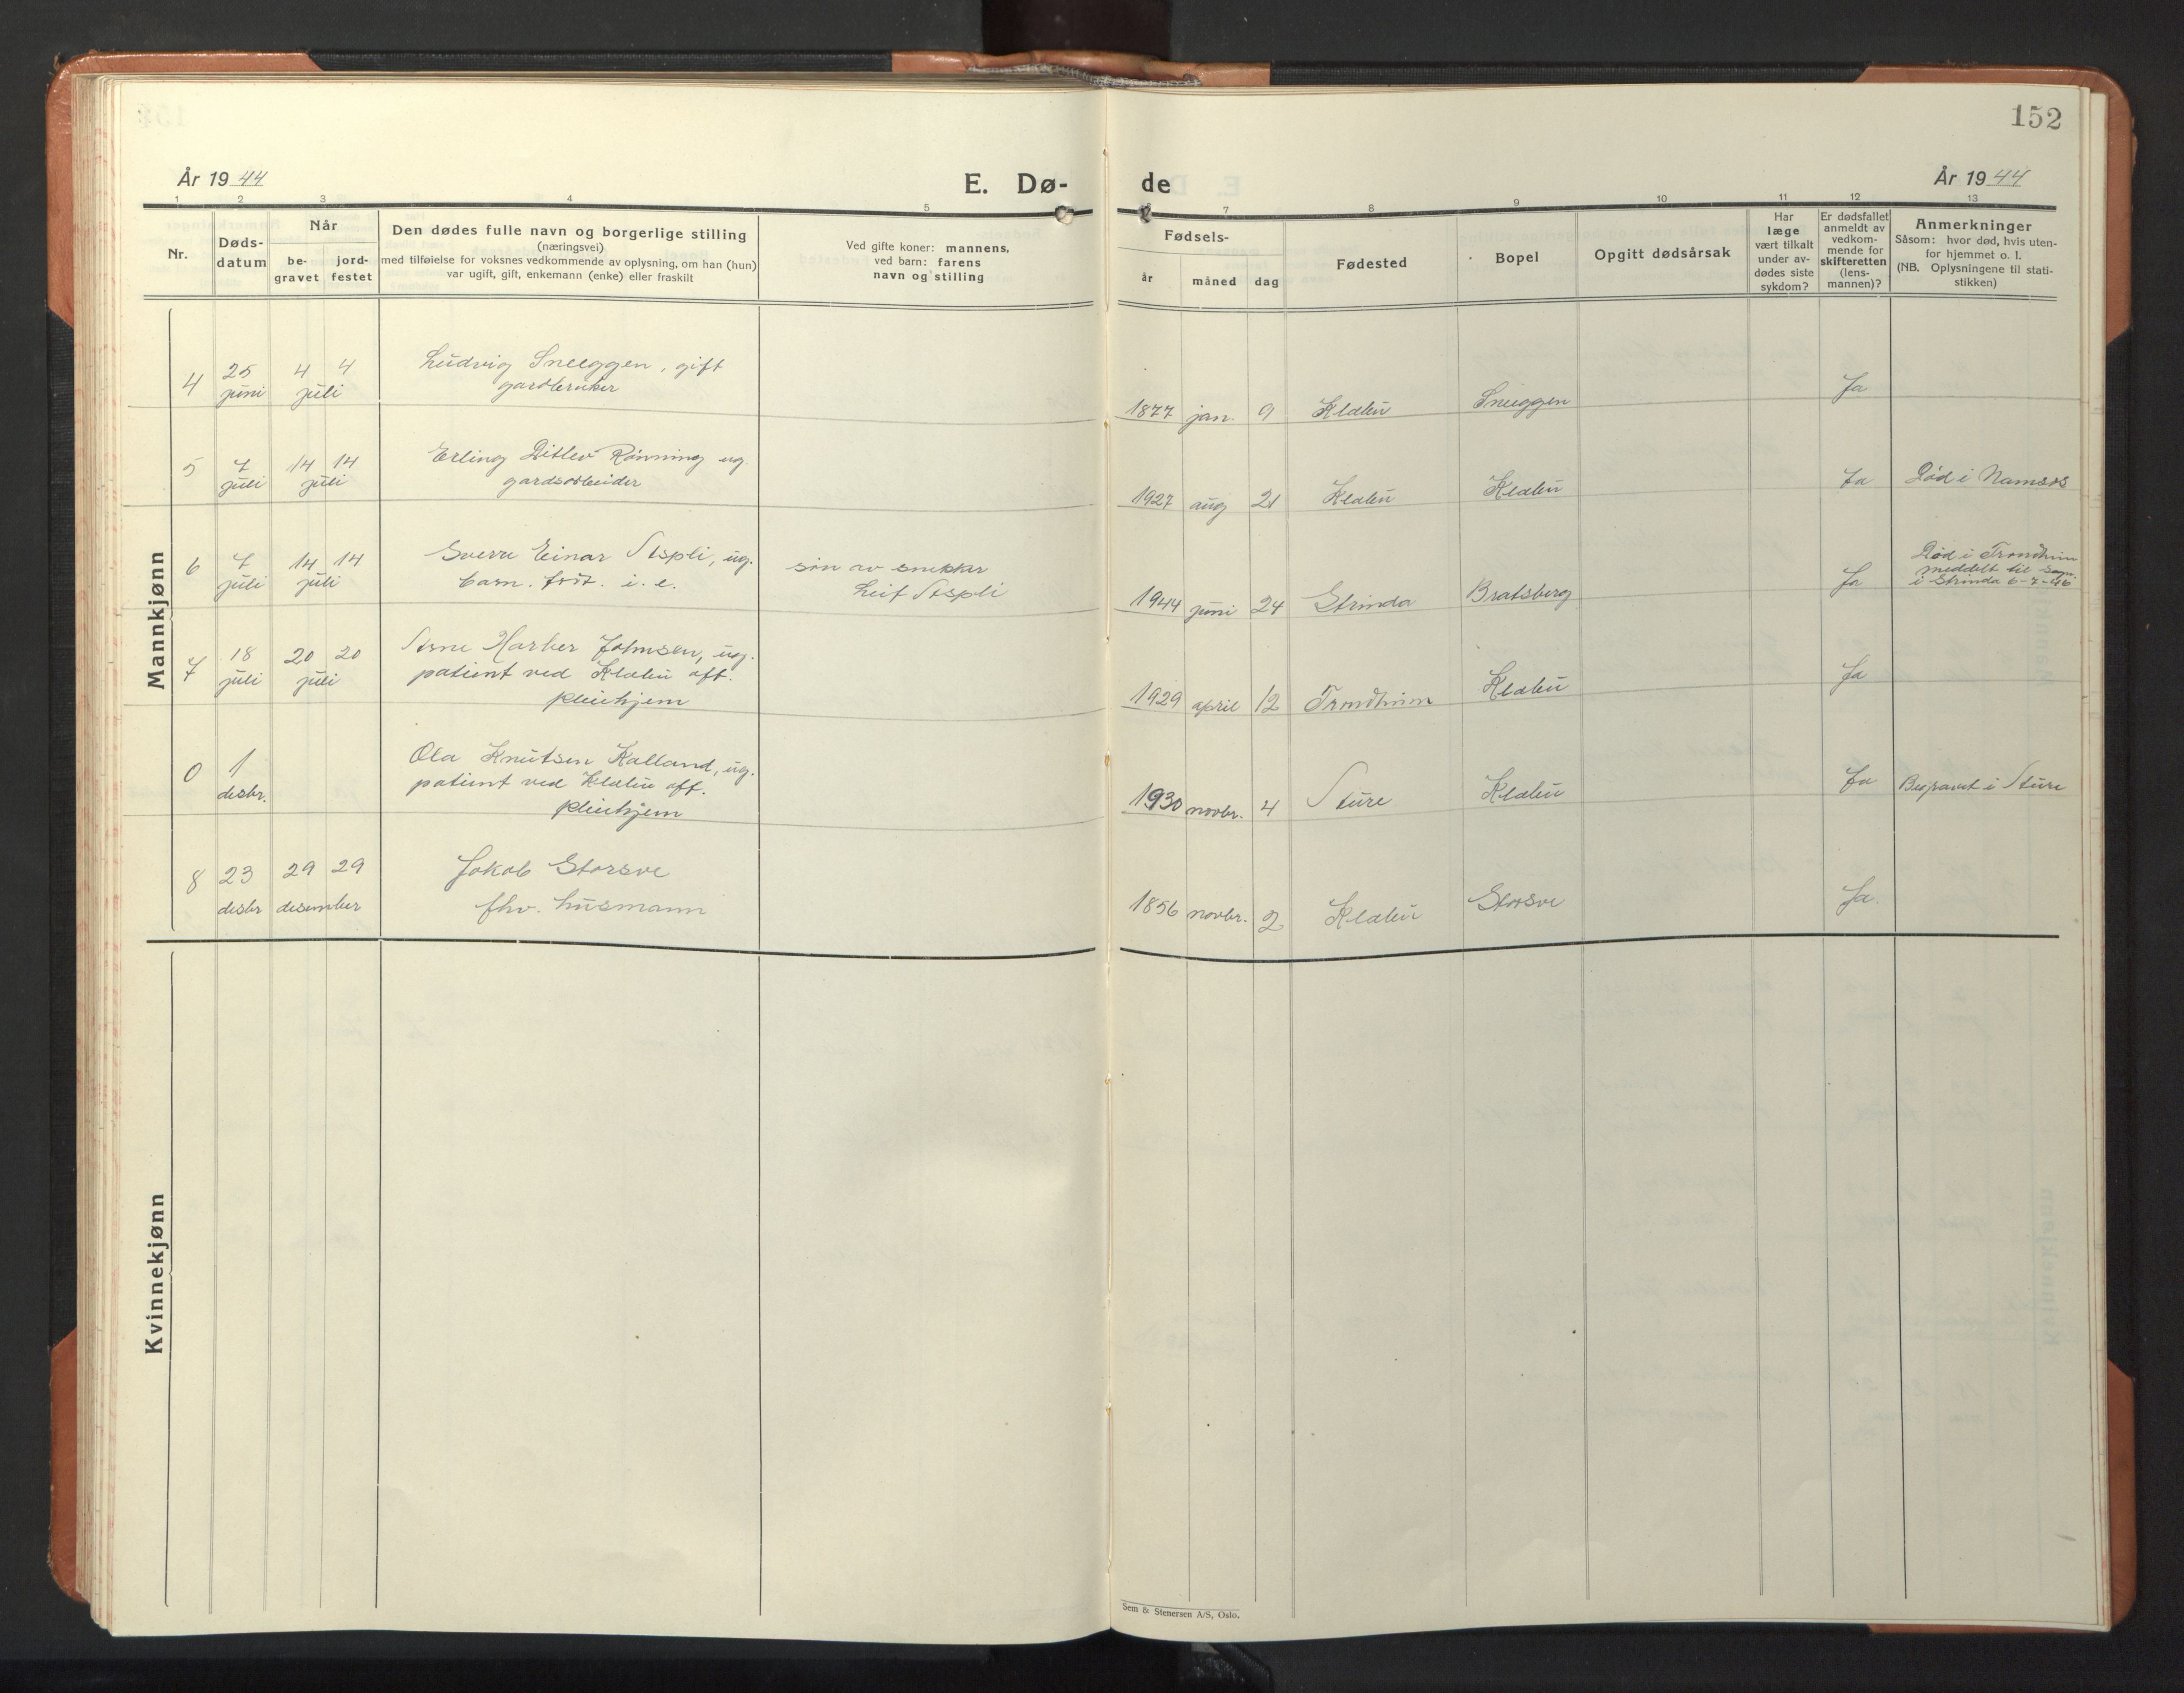 152
År 1944
E. Dø-
de
År 1944
1 2 3 4 5 6 7 8 9 10 11 12 13
Nr.
Døds-
datum
Når
be-
gravet
jord-
festet
Den dødes fulle navn og borgerlige stilling
(næringsvei)
med tilføielse for voksnes vedkommende av oplysning, om han (hun)
var ugift, gift, enkemann (enke) eller fraskilt
Ved gifte koner: mannens,
ved barn: farens
navn og stilling
Fødsels-
år
måned
dag
Fødested
Bopel
Opgitt dødsårsak
Har
læge
vært tilkalt
under av-
dødes siste
sykdom?
Er dødsfallet
anmeldt av
vedkom-
mende for
skifteretten
(lens-
mannen)?
Anmerkninger
Såsom: hvor død, hvis uten-
for hjemmet o. l.
(NB. Oplysningene til stati-
stikken)
Mannkjønn
4 25 4 4 Ludvig Sneeggen, gift
juni juli gardbruker
1877 jan. 9 Klæbu Sneeggen Ja
5 7 14 14 Erling Ditlev Rønning ug.
juli juli gardsarbeider
1927 aug 21 Klæbu Klæbu Ja Død i Namsos
6 7 14 14 Sverre Einar Aspli, ug.
juli juli barn. født. i. e.
søn av snekker
Leif Aspli
1944 juni 24 Strinda Bratsberg Ja
Død i Trondheim
meddelt til sogn.
i Strinda 6-7-46
7 18 20 20 Arne Harber Johnsen, ug.
juli juli patient ved Klæbu off.
pleiehjem
1929 april 12 Trondheim Klæbu Ja
0 1 Ola Knutsen Kalland, ug.
desbr. patient ved Klæbu off.
pleiehjem
1930 novbr. 4 Åture Klæbu Ja Begravet i Åture
8 23 29 29 Jakob Storsve
desbr desember fhv. husmann
1856 novbr. 2 Klæbu Storsve Ja.
Kvinnekjønn
Sem & Stenersen A/S, Oslo.